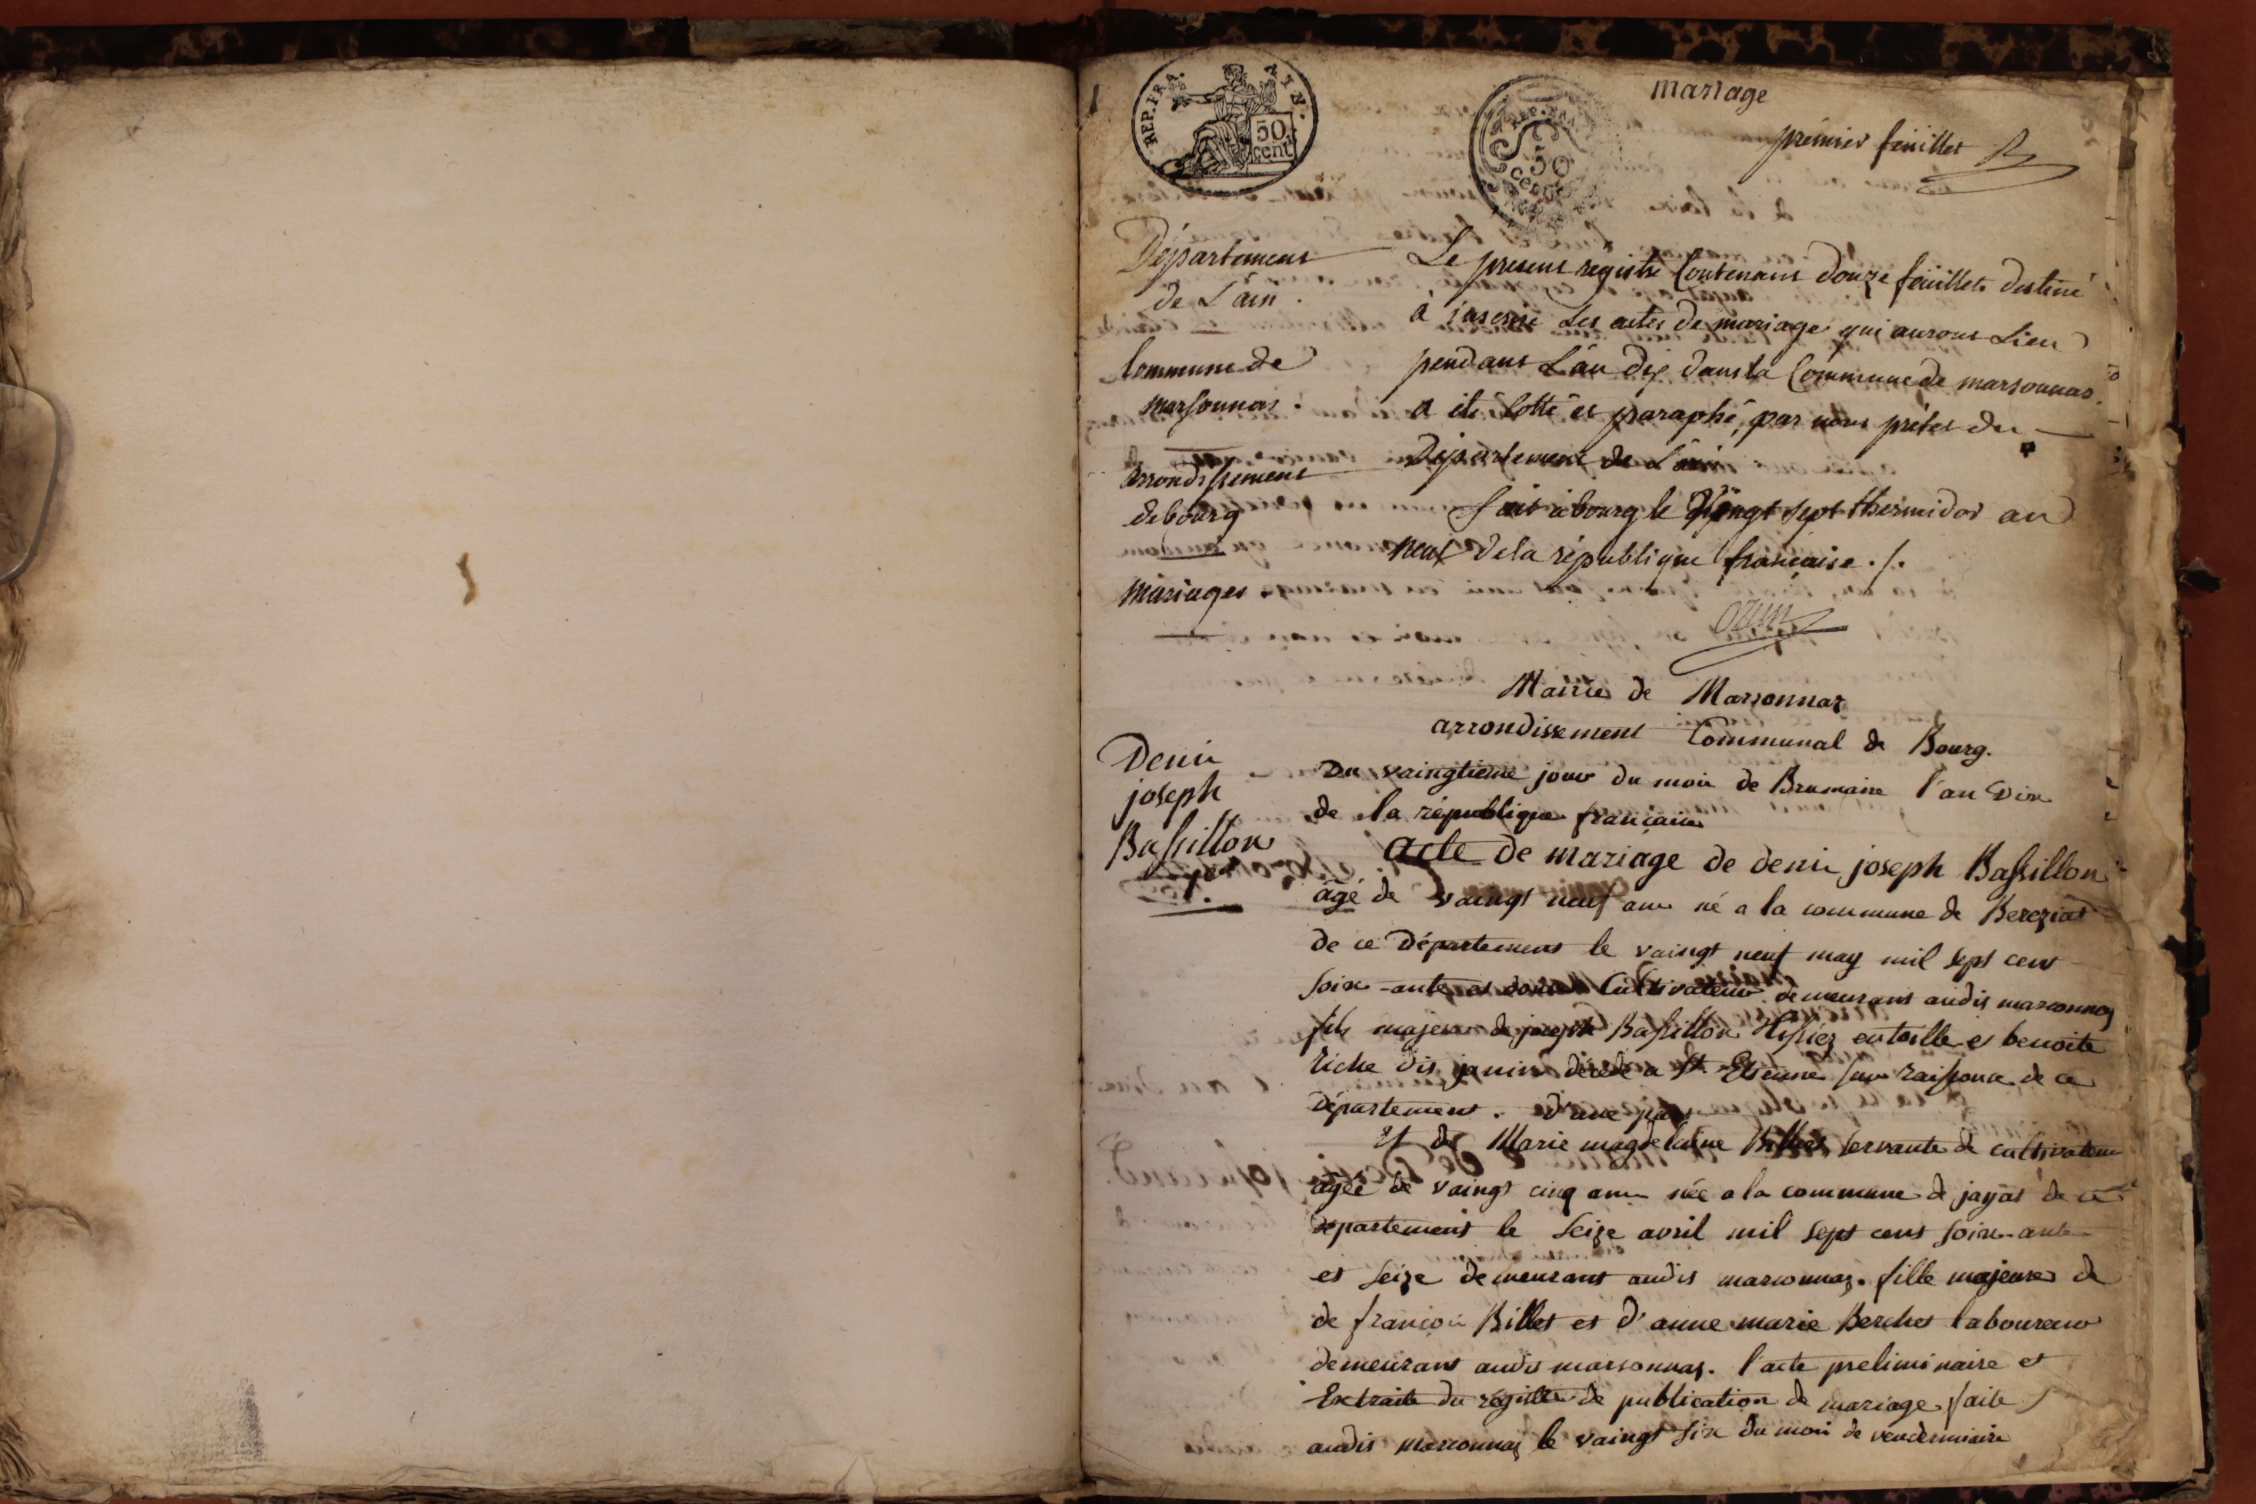 1
REP. FRA. ATN.
50 cent
REP. FRA
50
cent
mariage
premier feuillet
Département
de L'ain.
Commune de
marsonnas.
arrondissement
de bourg
mariages.
Le present registre Contenant douze feuillets destiné
à inscrire Les actes de mariage qui auront Lieu
pendant L'an dix dans la Commune de marsonnas.
a été Cotté et paraphé, par nous préfet du
Département de L'ain
fait à bourg le Vingt sept thermidor an
neuf de la république française ./.
ozun
Mairie de Marsonnas
arrondissement Communal de Bourg.
Denis
joseph
Bassillon
1er.
Du vaingtieme jour du mois de Brumaire l'an Dix
de la république française
acte de mariage de denis joseph Bassillon
âgé de vaingt neuf ans né a la commune de Bereziat
de ce Département le vaingt neuf may mil sept cent
soix-ante et douze Cultivateur demeurant audit marsonnas
fils majeur de joseph Bassillon en toille et benoite
Riche dit janin décédé a St Etienne sur raissouse de ce
département. d'une part
Et de Marie magdelaine Billet servante de cultivateur
agée de vaingt cinq ans née a la commune de jayat de ce
département le Seize avril mil sept cent soix-ante
et seize demeurant audit marsonnas. fille majeure de
de françois Billet et d'anne marie Berchet laboureur
demeurant audit marsonnas. l'acte preliminaire et
Extraite du régistre de publication de mariage faite
audit marsonnas le vaingt six du mois de vendemiaire